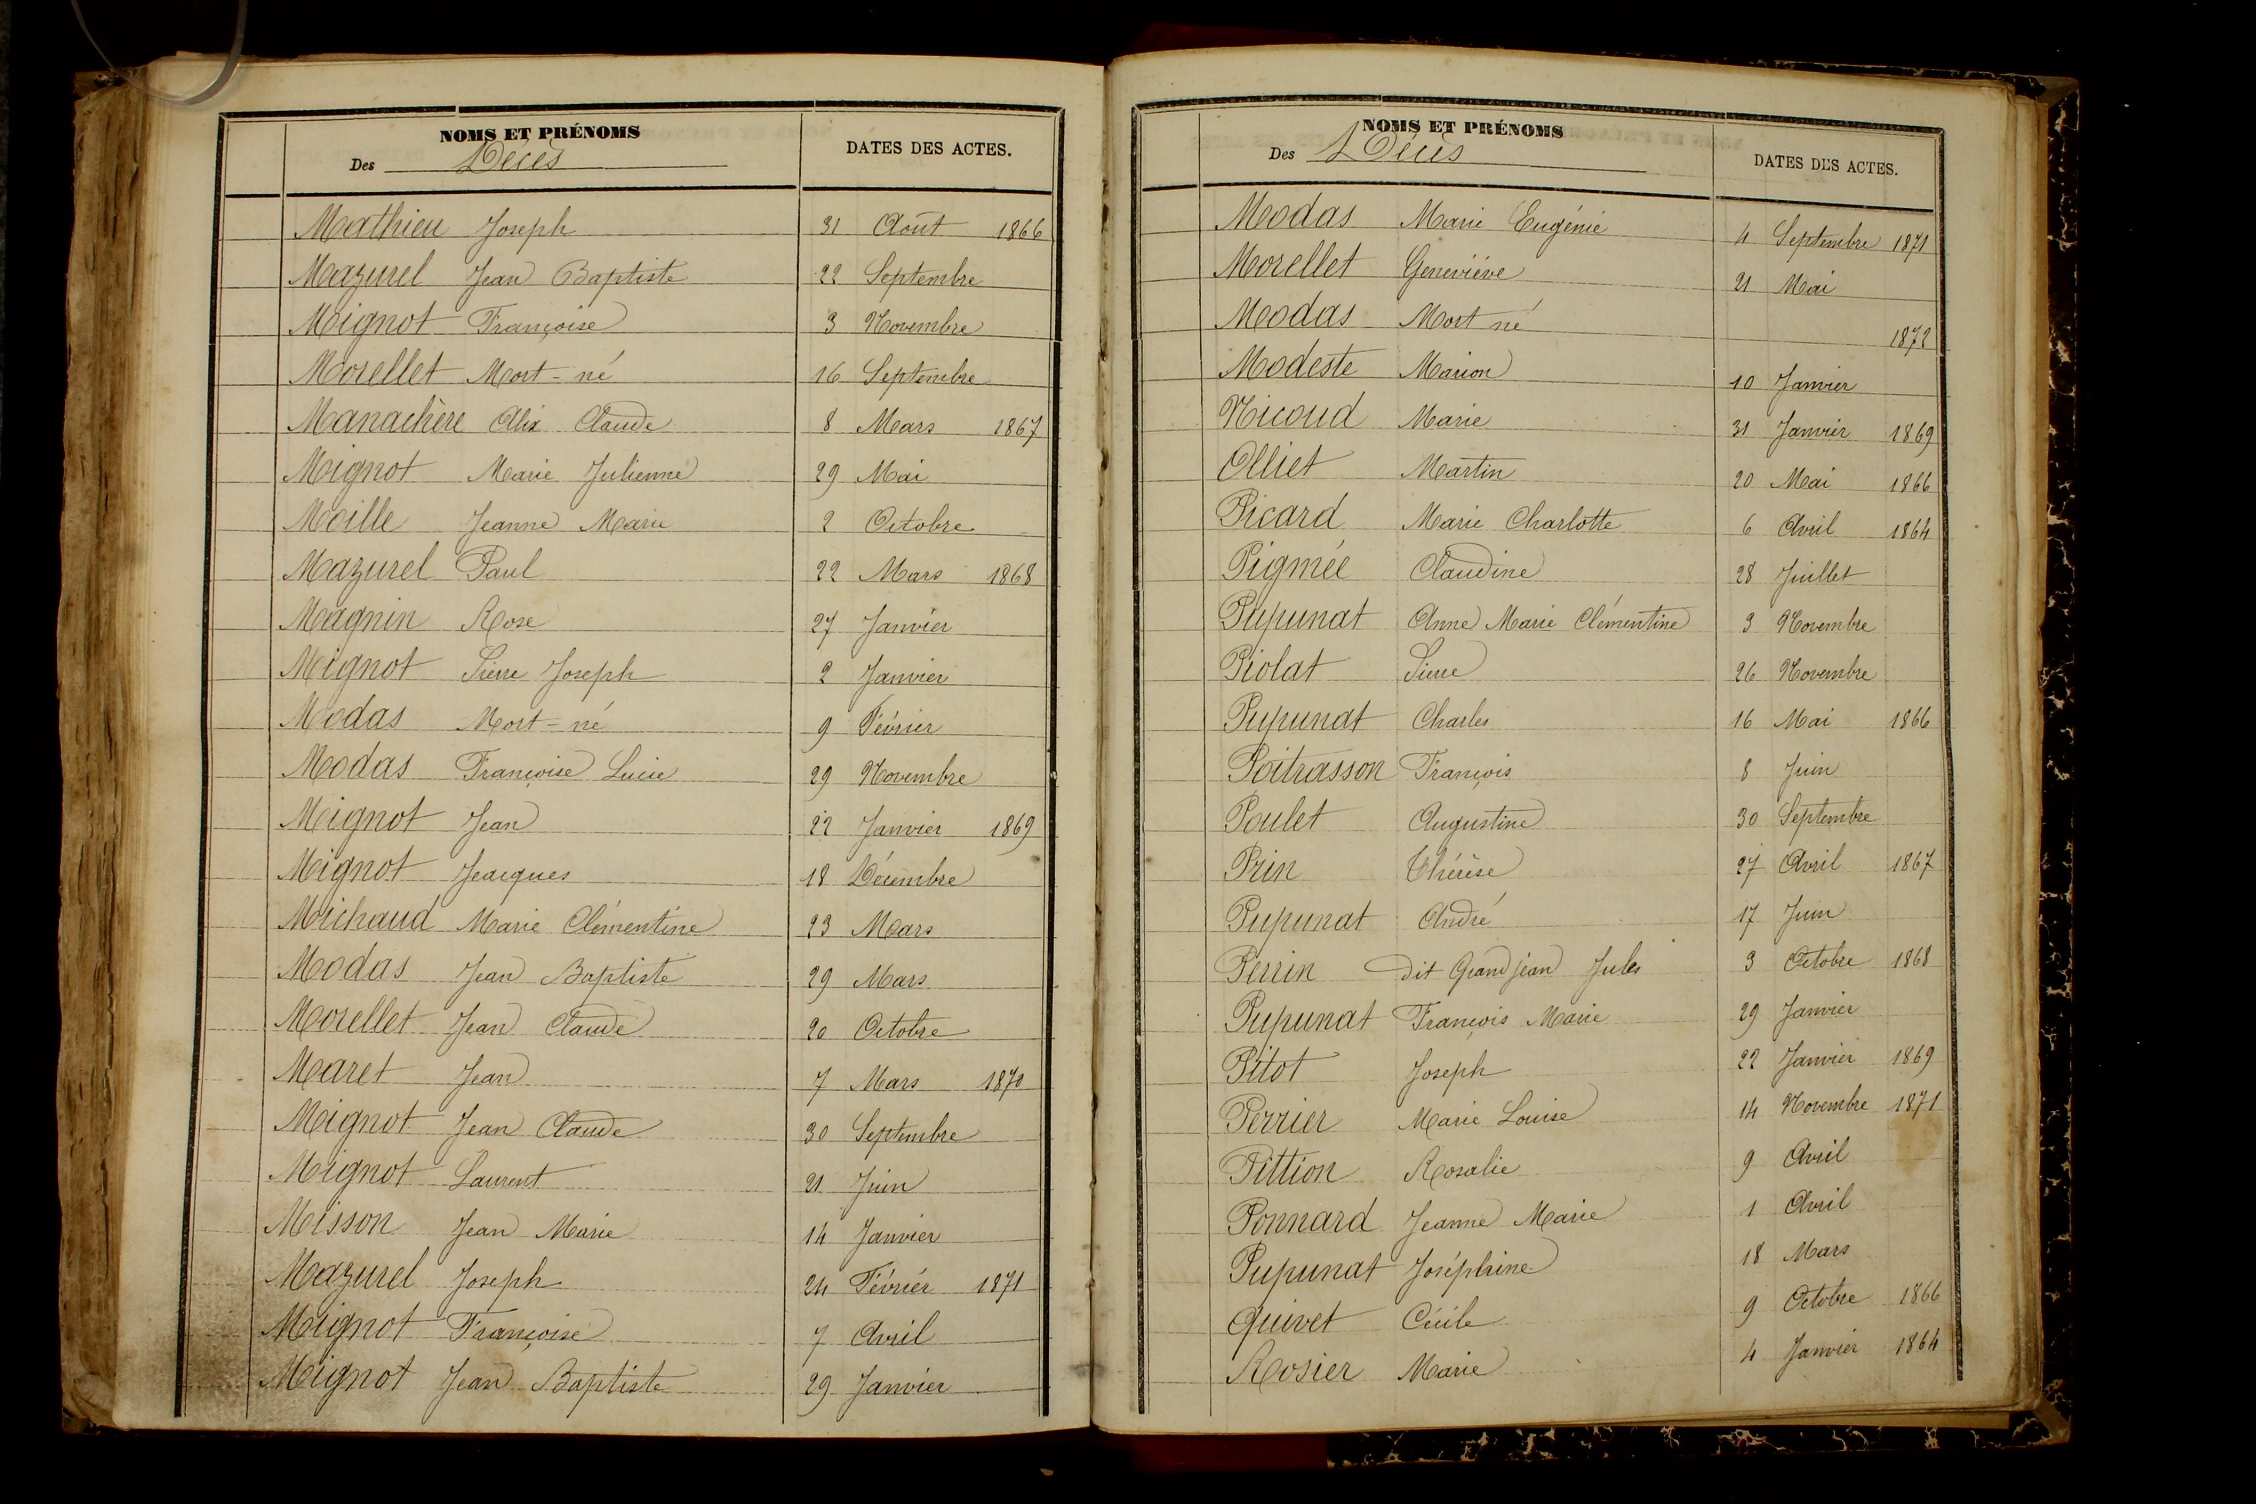 NOMS ET PRÉNOMS
Des Décès
DATES DES ACTES.
Mathieu Joseph 31 Août 1866
Mazurel Jean Baptiste 22 Septembre
Mignot Françoise 3 Novembre
Morellet Mort-né 16 Septembre
Manachère Alix Claude 8 Mars 1867
Mignot Marie Julienne 29 Mai
Moille Jeanne Marie 2 Octobre
Mazurel Paul 22 Mars 1868
Magnin Rose 27 Janvier
Mignot Pierre Joseph 2 Janvier
Modas Mort-né 9 Février
Modas Françoise Lucie 29 Novembre
Mignot Jean 22 Janvier 1869
Mignot Jeacques 18 Décembre
Michaud Marie Clémentine 23 Mars
Modas Jean Baptiste 29 Mars
Morellet Jean Claude 20 Octobre
Maret Jean 7 Mars 1870
Mignot Jean Claude 30 Septembre
Mignot Laurent 21 Juin
Misson Jean Marie 14 Janvier
Mazurel Joseph 24 Février 1871
Mignot Françoise 7 Avril
Mignot Jean Baptiste 29 Janvier
NOMS ET PRÉNOMS
Des Décès
DATES DES ACTES.
Modas Marie Eugénie 4 Septembre 1871
Morellet Geneviéve 21 Mai
Modas Mort né 1872
Modeste Marion 10 Janvier
Nicoud Marie 31 Janvier 1869
Olliet Martin 20 Mai 1866
Picard Marie Charlotte 6 Avril 1864
Pigmée Claudine 28 Juillet
Pupunat Anne Marie Clémentine 3 Novembre
Piolat Pierre 26 Novembre
Pupunat Charles 16 Mai 1866
Poitrasson François 8 Juin
Poulet Augustine 30 Septembre
Prin Thérèse 27 Avril 1867
Pupunat André 17 Juin
Perrin dit Grandjean Jules 3 Octobre 1868
Pupunat François Marie 29 Janvier
Pitot Joseph 22 Janvier 1869
Perrier Marie Louise 14 Novembre 1871
Pittion Rosalie 9 Avril
Ponnard Jeanne Marie 1 Avril
Pupunat Joséphine 18 Mars
Quivet Cécile 9 Octobre 1866
Rosier Marie 4 Janvier 1864